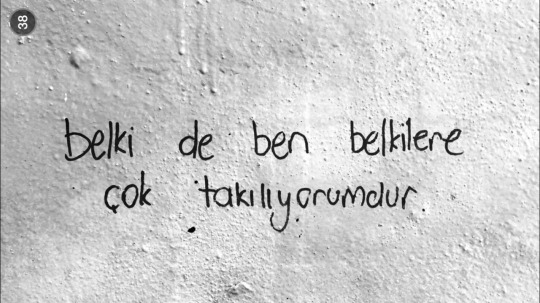 38
belki de ben belkilere
çok takılıyorumdur.